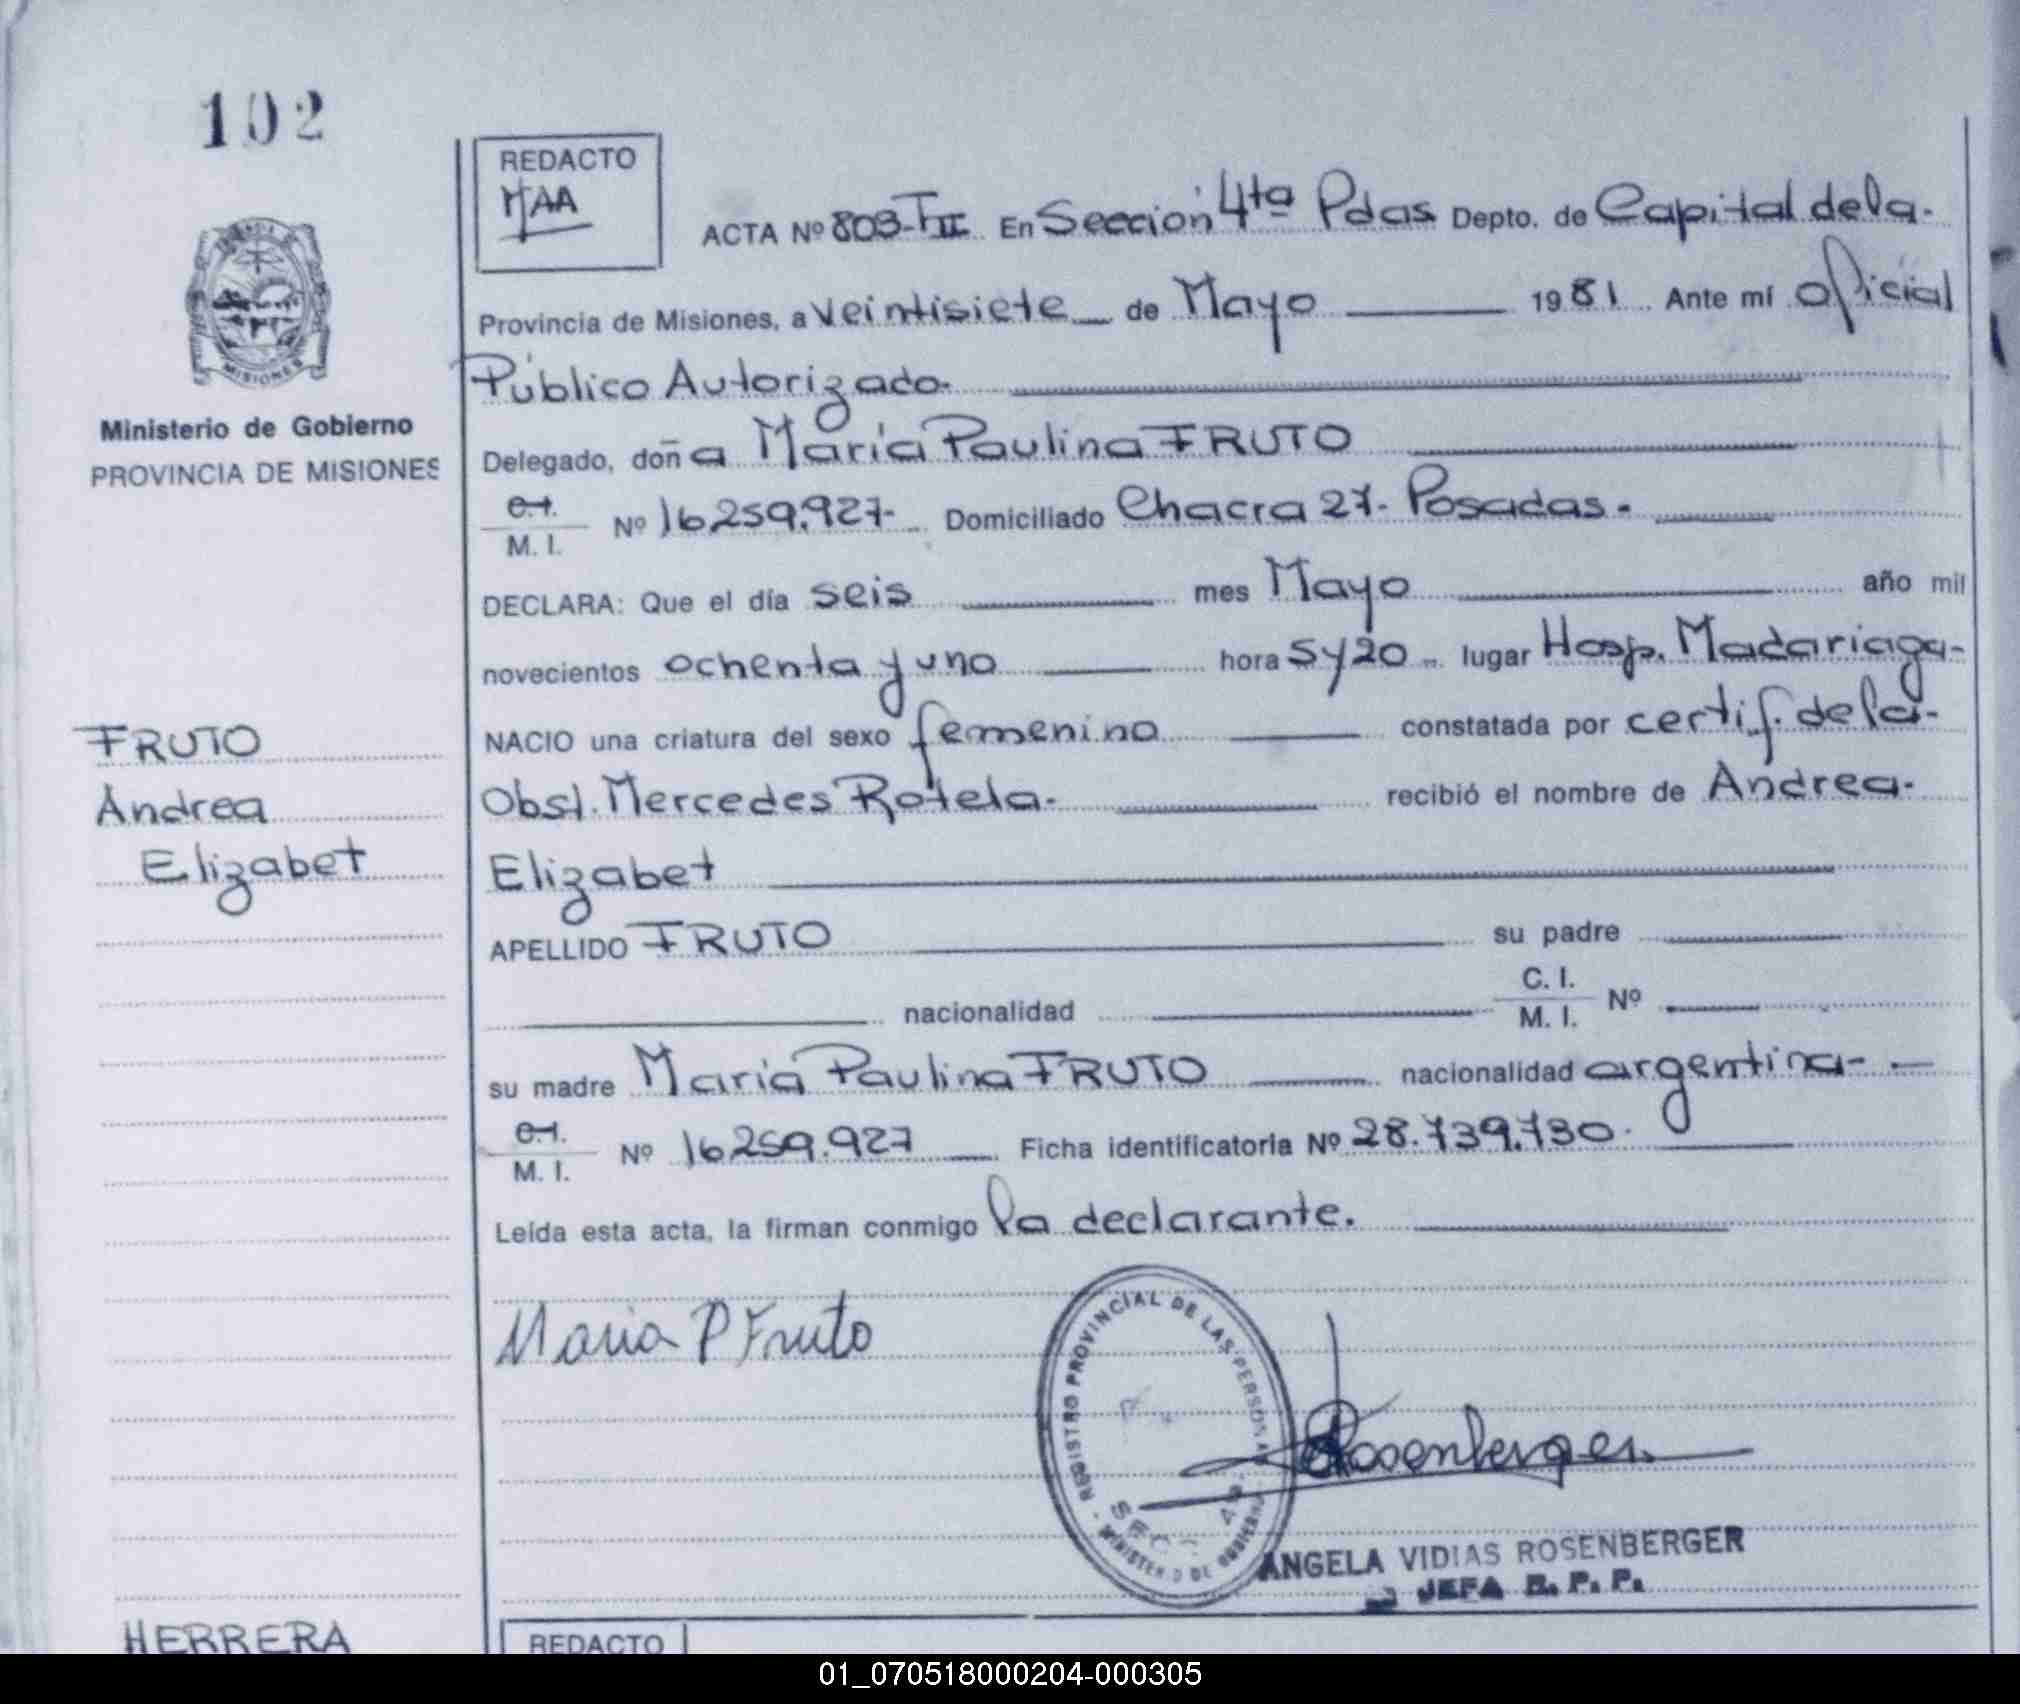 102
REDACTO
MAA
ACTA Nº 803-TII En Sección 4ta Pdas Depto. de Capital de la.
MISIONES
Provincia de Misiones, a veintisiete de Mayo 1981. Ante mí oficial
Público Autorizado.
Ministerio de Gobierno
PROVINCIA DE MISIONES
Delegado, doña María Paulina FRUTO
C.I.
M. I. Nº 16.259.927- Domiciliado Chacra 27- Posadas.
DECLARA: Que el día seis mes Mayo año mil
novecientos ochenta y uno hora 5y20 lugar Hosp. Madariaga-
FRUTO
Andrea
Elizabet
NACIO una criatura del sexo femenino constatada por certif. de la-
Obst. Mercedes Rotela. recibió el nombre de Andrea-
Elizabet
APELLIDO FRUTO su padre
nacionalidad C. I.
M. I. Nº
su madre María Paulina FRUTO nacionalidad argentina-
C.I.
M. I. Nº 16.259.927 Ficha identificatoria Nº 28.739.730.
Leída esta acta, la firman conmigo la declarante.
Maria P Fruto
REGISTRO PROVINCIAL DE LAS PERSONAS
MINISTERIO DE GOBIERNO
Rosenberger
ANGELA VIDIAS ROSENBERGER
JEFA R. P. P.
HERRERA
REDACTO
01_070518000204-000305